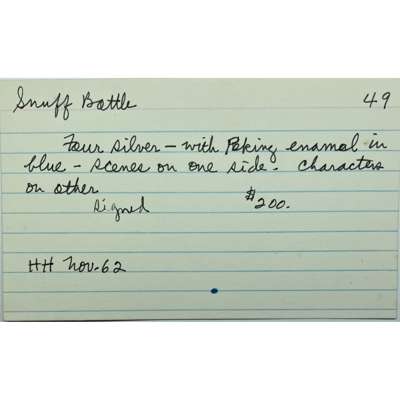 Snuff Bottle 49
Four silver - with Peking enamel in
blue - scenes on one side. Characters
on other
signed $200.
HH Nov-62